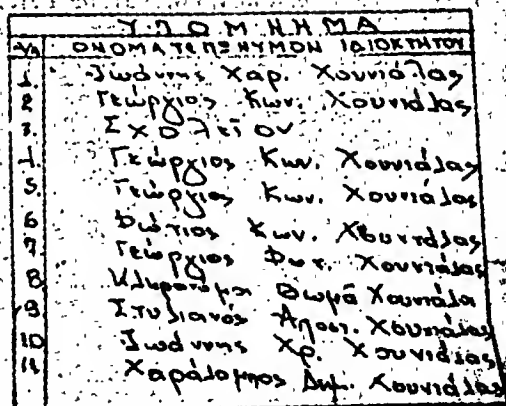 ΥΠΟΜΝΗΜΑ
α/α ΟΝΟΜΑΤΕΠΩΝΥΜΟΝ ΙΔΙΟΚΤΗΤΟΥ
1. Ιωάννης Χαρ. Χουνιάλας
2 Γεώργιος Κων. Χουνιάλας
3. Σχολείον
4. Γεώργιος Κων. Χουνιάλας
5. Γεώργιος Κων. Χουνιάλας
6 Φώτιος Κων. Χουνιάλας
7. Γεώργιος Φωτ. Χουνιάλας
8 Κληρονόμοι Θωμά Χουνιάλα
9 Στυλιανός Αποστ. Χουνιάλας
10 Ιωάννης Χρ. Χουνιάλας
11 Χαράλαμπος Δημ. Χουνιάλας